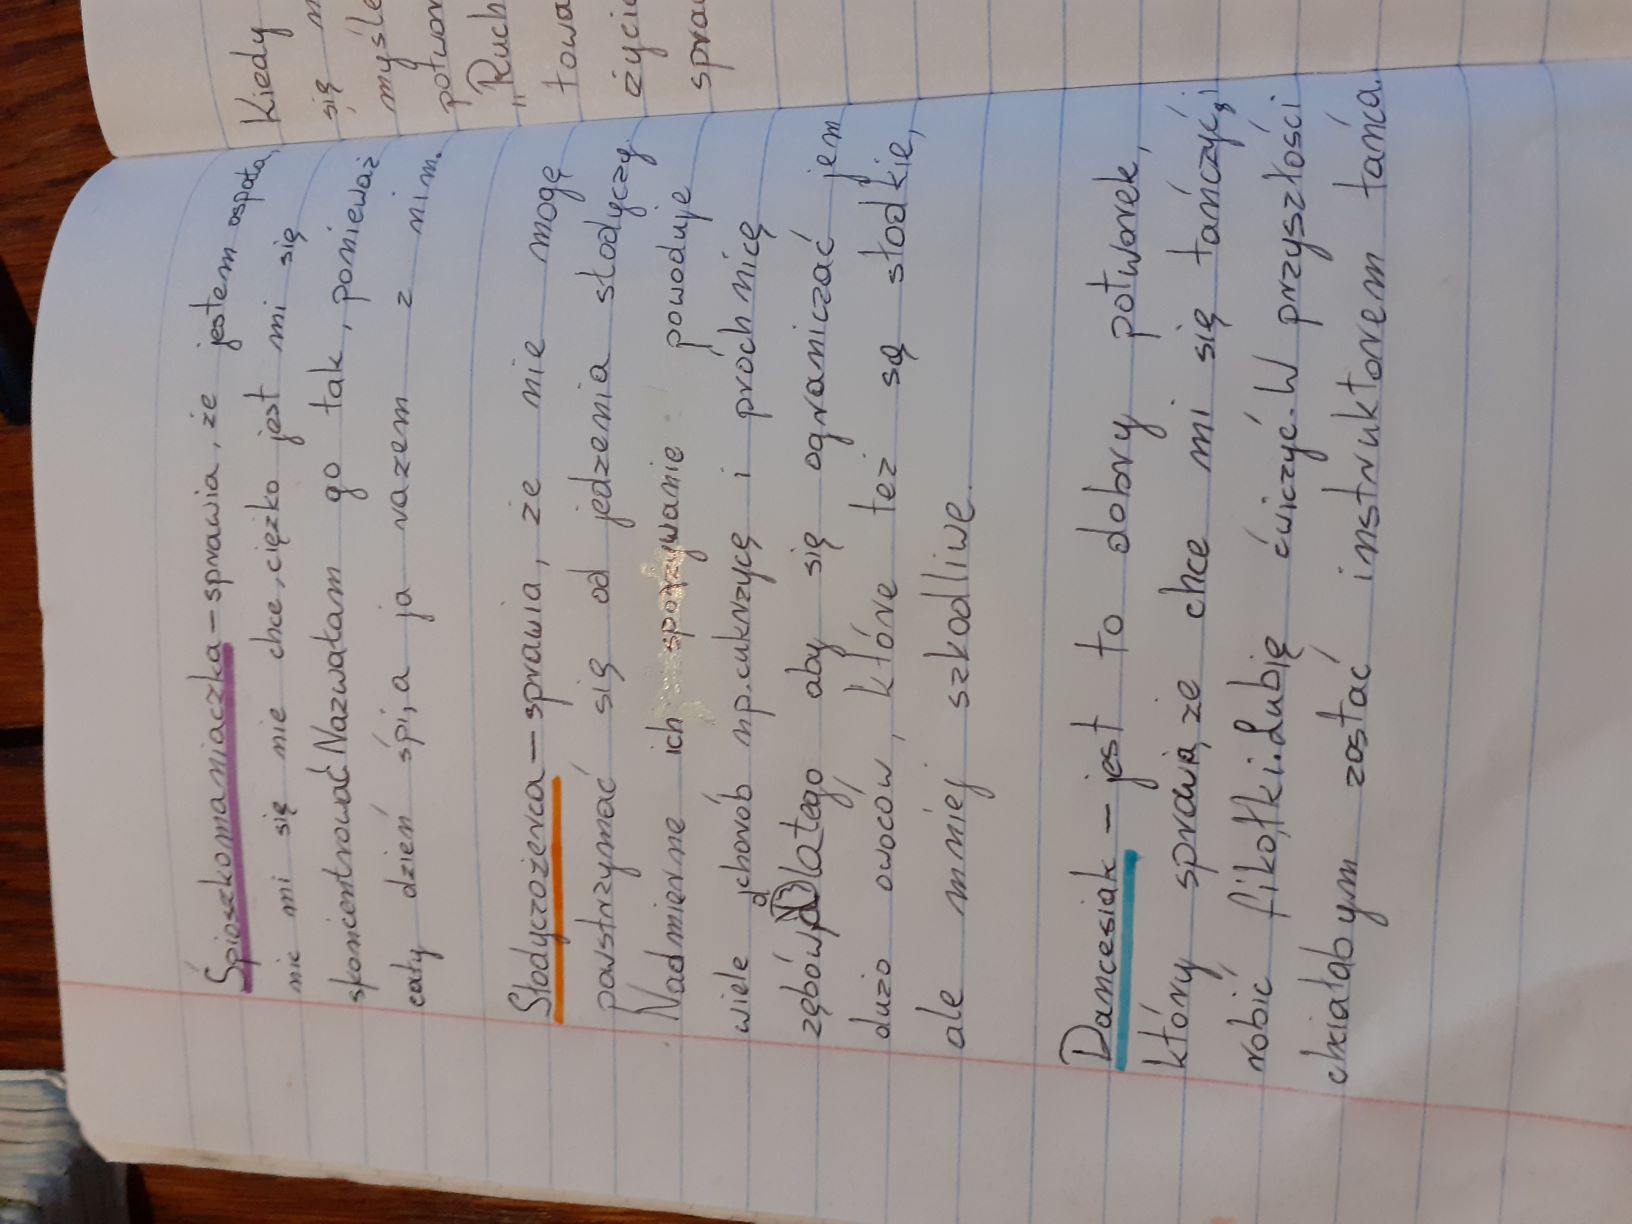 Śpioszkomaniaczka - sprawia, że jestem ospała,
nic mi się nie chce, ciężko jest mi się
skoncentrować. Nazwałam go tak, ponieważ
cały dzień śpi, a ja razem z nim.
Słodyczożerca - sprawia, że nie mogę
powstrzymać się od jedzenia słodyczy.
Nadmierne ich spożywanie powoduje
wiele chorób np. cukrzycę i próchnicę
zębów. Dlatego aby się ograniczać jem
dużo owoców, które też są słodkie,
ale mniej szkodliwe.
Dancesiak - jest to dobry potworek,
który sprawia, że chce mi się tańczyć i
robić fikołki. Lubię ćwiczyć. W przyszłości
chciałabym zostać instruktorem tańca.
Kiedy
się
myśle
potwor
"Ruch
towa
życi
spra